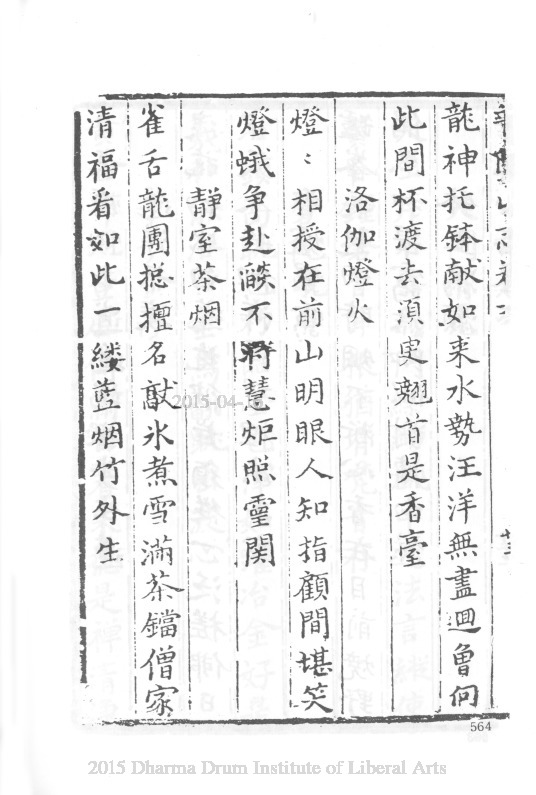 龍神托鉢献如来水勢汪洋無盡迴曾向
此間杯渡去須臾翹首是香臺
洛伽燈火
燈〻相授在前山明眼人知指顧間堪笑
燈蛾争赴燄不將慧炬照靈関
靜室茶烟
雀舌龍團摠擅名敲氷煮雪滿茶鐺僧家
清福看如此一縷藍烟竹外生
564
2015-04-
2015 Dharma Drum Institute of Liberal Arts